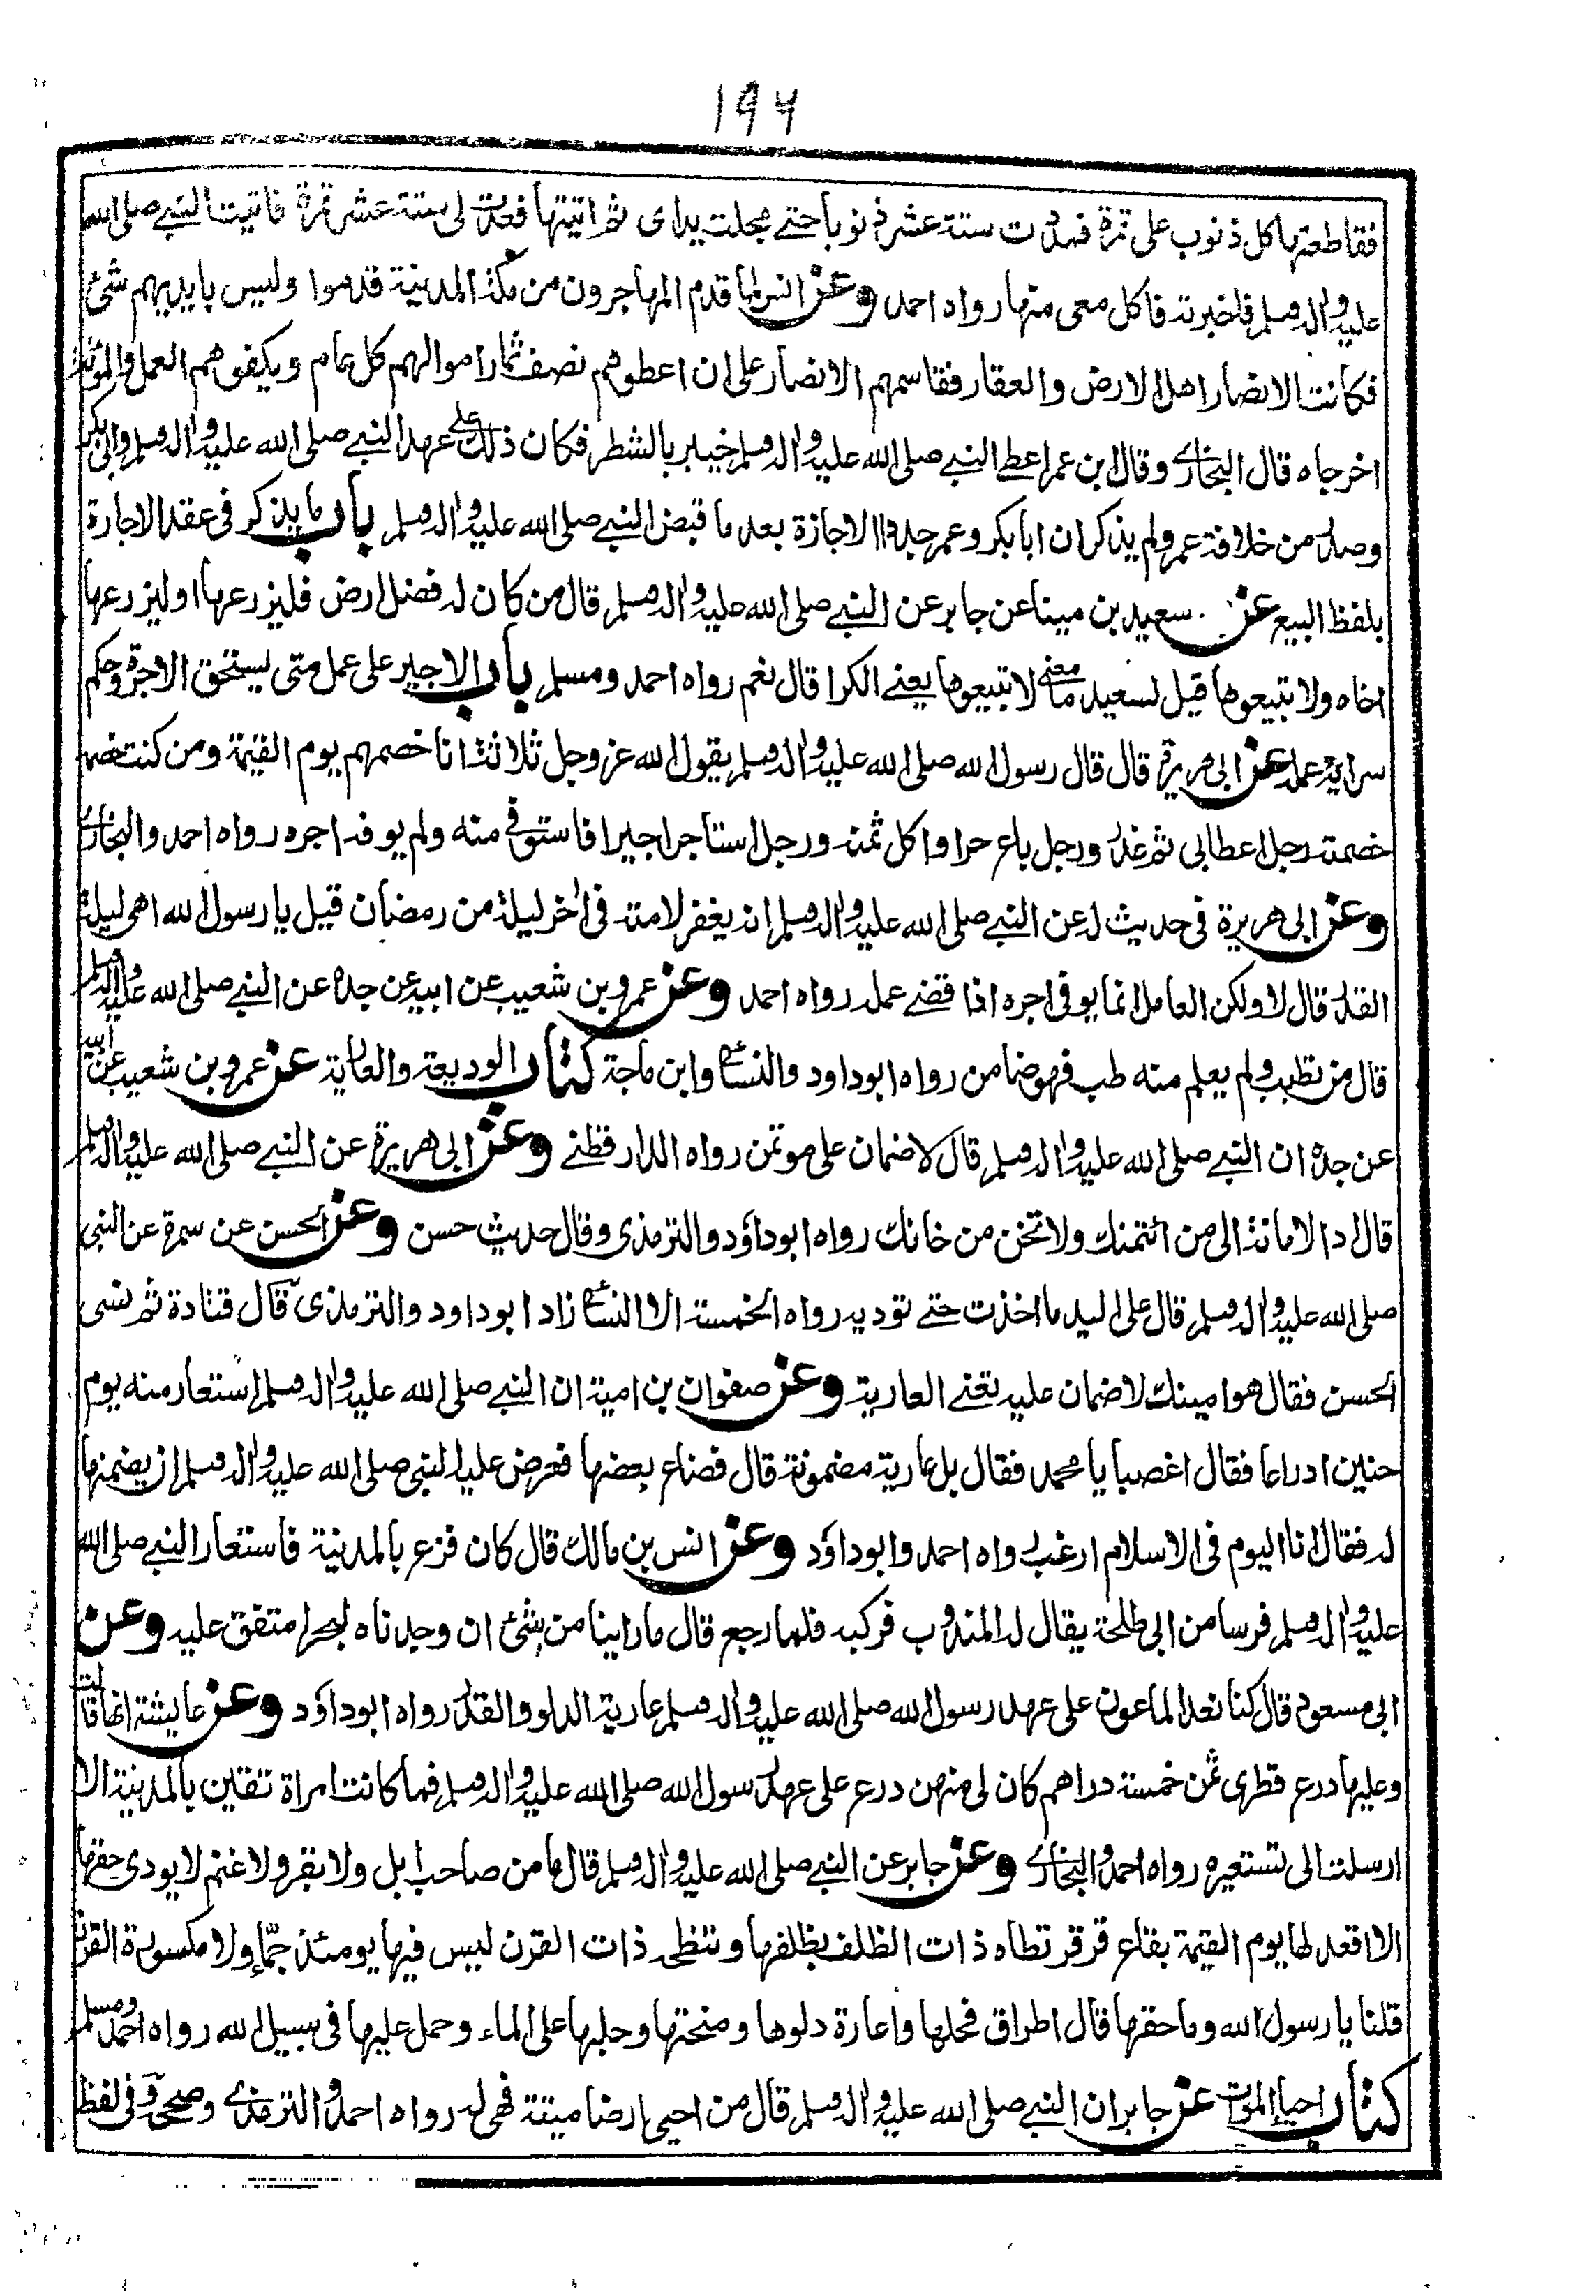 ۱۹۶
فقاطعتها كل ذنوب على تمرة فمددت ستة عشر ذنوبا حتے مجلت يداى ثم اتيتها فعدت لى ستة عشر تمرة فاتيت النبے صلى الله
عليه واله وسلم فاخبرته فاكل معى منها رواه احمد وعن انس لما قدم المهاجرون من مكة المدينة قدموا وليس بايديهم شئ
فكانت الانصار اهل الارض والعقار فقاسمهم الانصار على ان اعطوهم نصف ثمار اموالهم كل عام ويكفوهم العمل والمؤنة
اخرجاه قال البخارے وقال ابن عمر اعطے النبے صلى الله عليه واله وسلم خيبر بالشطر فكان ذلك علے عهد النبے صلى الله عليه واله وسلم وابى بكر
وصدرا من خلافة عمر ولم يذكر ان ابا بكر وعمر جددا الاجازة بعد ما قبض النبے صلى الله عليه واله وسلم باب ما يذكر فى عقد الاجارة
بلفظ البيع عن سعيد بن مينا عن جابر عن النبے صلى الله عليه واله وسلم قال من كان له فضل ارض فليزرعها او ليزرعها
اخاه ولا تبيعوها قيل لسعيد ما معنے لا تبيعوها يعنے الكرا قال نعم رواه احمد ومسلم باب الاجير على عمل متى يستحق الاجرة وحكم
سراية عمله عن ابى هريرة قال قال رسول الله صلى الله عليه واله وسلم يقول الله عز وجل ثلاثة انا خصمهم يوم القيمة ومن كنت خصمه
خصمته رجل اعطا بى ثم غدر ورجل باع حرا واكل ثمنه ورجل استاجر اجيرا فاستوفے منه ولم يوفه اجره رواه احمد والبخارے
وعن ابى هريرة فى حديث له عن النبے صلى الله عليه واله وسلم انه يغفر لامته فى اٰخر ليلة من رمضان قيل يا رسول الله اهى ليلة
القدر قال لا ولكن العامل انما يوفى اجره اذا قضے عمله رواه احمد وعن عمرو بن شعيب عن ابيه عن جده عن النبے صلى الله عليه واله وسلم
قال من تطبب ولم يعلم منه طب فهو ضامن رواه ابوداود والنسائے وابن ماجة كتاب الوديعة والعارية عن عمرو بن شعيب عن ابيه
عن جده ان النبے صلى الله عليه واله وسلم قال لا ضمان على موتمن رواه الدارقطنے وعن ابى هريرة عن النبے صلى الله عليه واله وسلم
قال اد الامانة الى من ائتمنك ولا تخن من خانك رواه ابوداؤد والترمذى وقال حديث حسن وعن الحسن عن سمرة عن النبى
صلى الله عليه واله وسلم قال على اليد ما اخذت حتے توديه رواه الخمسة الا النسائے زاد ابوداود والترمذى قال قتادة ثم نسى
الحسن فقال هو امينك لا ضمان عليه يعنے العارية وعن صفوان بن امية ان النبے صلى الله عليه واله وسلم استعار منه يوم
حنين ادراعا فقال اغصبا يا محمد فقال بل عارية مضمونة قال فضاع بعضها فعرض عليه النبى صلى الله عليه واله وسلم ان يضمنها
له فقال انا اليوم فى الاسلام ارغب رواه احمد وابوداؤد وعن انس بن مالك قال كان فزع بالمدينة فاستعار النبے صلى الله
عليه واله وسلم فرسا من ابى طلحة يقال له المندوب فركبه فلما رجع قال ما راينا من شئ ان وجدناه لبحرا متفق عليه وعن
ابى مسعود قال كنا نعد الماعون على عهد رسول الله صلى الله عليه واله وسلم عارية الدلو والقدر رواه ابوداؤد وعن عايشة انها قالت
وعليها درع قطرى ثمن خمسة دراهم كان لى منهن درع على عهد رسول الله صلى الله عليه واله وسلم فما كانت امراة تقين بالمدينة الا
ارسلت الى تستعيره رواه احمد والبخارے وعن جابر عن النبے صلى الله عليه واله وسلم قال ما من صاحب ابل ولا بقر ولا غنم لا يودى حقها
الا اقعد لها يوم القيمة بقاع قرقر تطاه ذات الظلف بظلفها وتنطحه ذات القرن ليس فيها يومئذ جمّاء ولا مكسورة القرن
قلنا يا رسول الله وما حقها قال اطراق فحلها واعارة دلوها ومنحتها وحلبها على الماء وحمل عليها فى سبيل الله رواه احمد ومسلم
كتاب احياء الموات عن جابر ان النبے صلى الله عليه واله وسلم قال من احيى ارضا ميتة فهى له رواه احمد والترمذے وصححه وفى لفظ